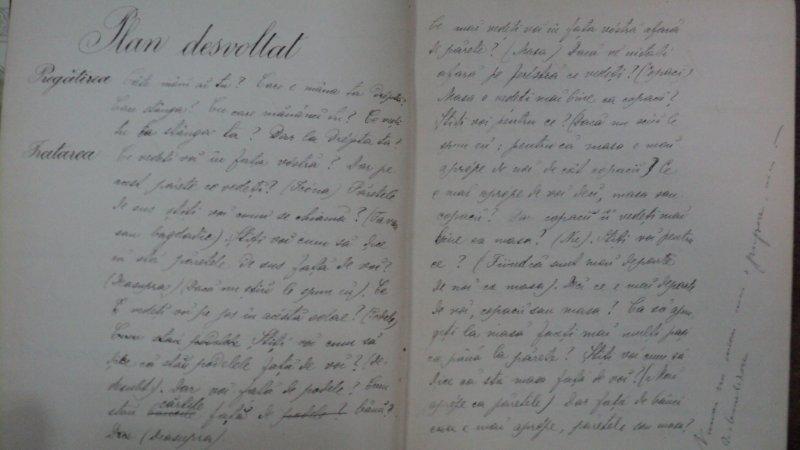 Plan desvoltat
Pregătirea Câte mâni ai tu? Care e mâna ta dréptă?
Care stânga? Cu care mănânci tu? Ce vede
tu la stânga ta? Dar la drépta ta?
Tratarea Ce vedeți voi în fața vóstră? Dar pe
acest părete ce vedeți? (Icona) Păretele
de sus știți voi cum se chiamă? (Tavan
sau bagdadie). Știți voi cum să dice
în stă păretele de sus față de voi?
(Deasupra) (Dacă nu știu le spun eu). Ce
vedeți voi pe jos în acéstă solae? (Podele)
Cum stau podelele Știți voi cum să
dice că stau podelele față de voi? (De
desubt). Dar voi față de podele? Cum
stau cărțile față de podele? bănci?
Dica (Deasupra).
Ce mai vedeți voi în fața vóstră afară
de părete? (Masa) Dacă vĕ uitați
afară pe feréstră ce vedeți? (Copaci)
Masa o vedeți mai bine ca copacii?
Știți voi pentru ce? (Dacă nu sciŭ le
spun eŭ: pentru că masa e mai
aprópe de noi de cât copacii) Ce
e mai aprópe de voi deci, masa sau
copacii? Dar copacii îi vedeți mai
bine ca masa? (Nu). Știți voi pentru
ce? (Fiind că sunt mai departe
de noi ca masa). Deci ce e mai departe
de voi, copacii sau masa? Ca să ajun
geți la masă faceți mai mulți pași
ca până la părete? Știți voi cum să
dice că stă masa față de voi? (Mai
aprópe ca păretele) Dar față de bănci
care e mai aprópe, păretele sau masa?